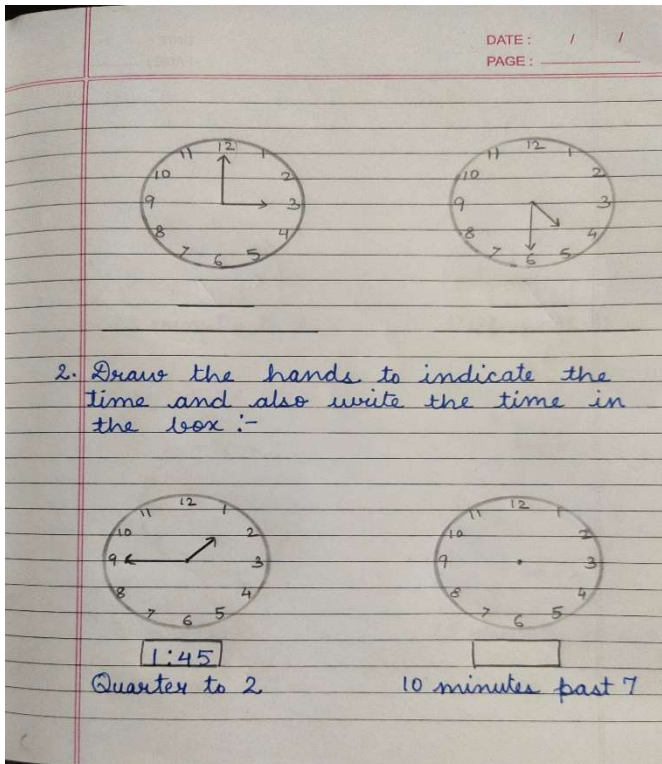 DATE : / /
PAGE :
12 1 2 3 4 5 6 7 8 9 10 11
12 1 2 3 4 5 6 7 8 9 10 11
2. Draw the hands to indicate the
time and also write the time in
the box :-
12 1 2 3 4 5 6 7 8 9 10 11
12 1 2 3 4 5 6 7 8 9 10 11
1:45
Quarter to 2 10 minutes past 7